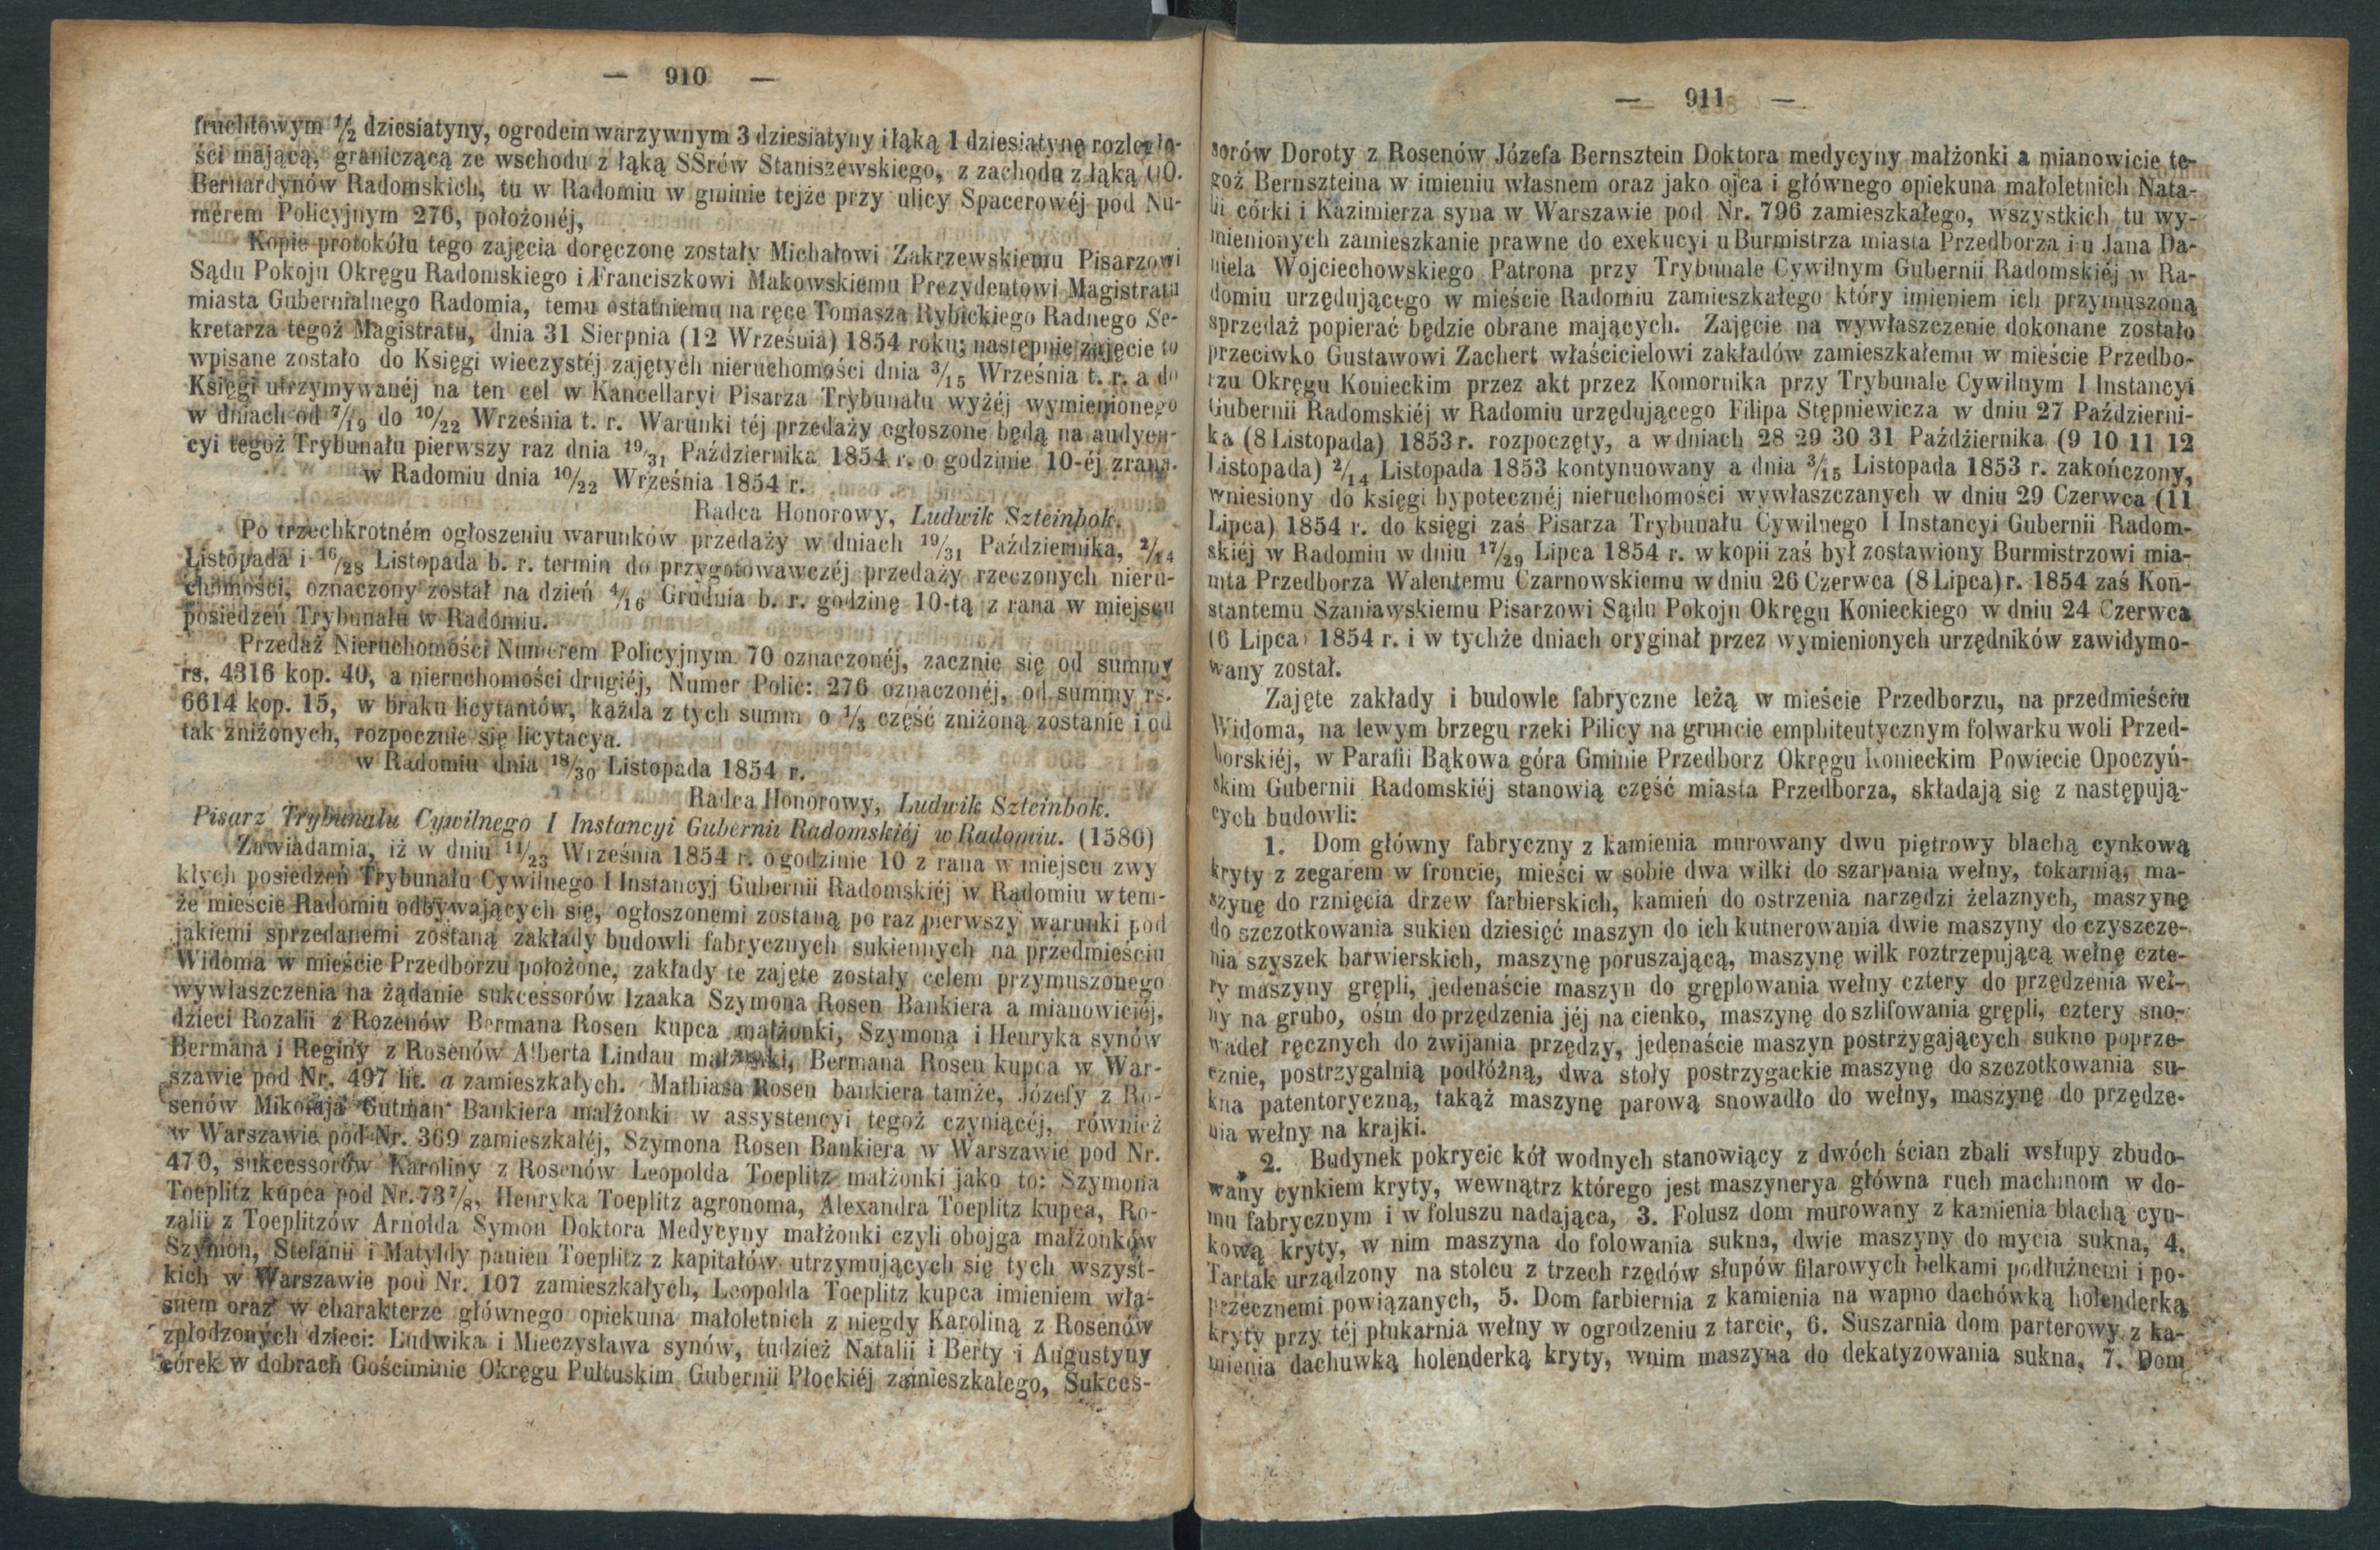 — 910 —
fruchtowym ½ dziesiatyny, ogrodem warzywnym 3 dziesiatyny i łąką 1 dziesiatynę rozległo-
ści mającą, graniczącą ze wschodu z łąką SSrów Staniszewskiego, z zachodu z łąką OO.
Bernardynów Radomskich, tu w Radomiu w gminie tejże przy ulicy Spacerowéj pod Nu-
merem Policyjnym 276, położonéj,
Kopie protokółu tego zajęcia doręczone zostały Michałowi Zakrzewskiemu Pisarzowi
Sądu Pokoju Okręgu Radomskiego i Franciszkowi Makowskiemu Prezydentowi Magistratu
miasta Gubernialnego Radomia, temu ostatniemu na ręce Tomasza Rybickiego Radnego Se-
kretarza tegoż Magistratu, dnia 31 Sierpnia (12 Września) 1854 roku; następnie zajęcie to
wpisane zostało do Księgi wieczystéj zajętych nieruchomości dnia 3/15 Września t. r. a do
Księgi utrzymywanéj na ten cel w Kancellaryi Pisarza Trybunału wyżéj wymienionego
w dniach od 7/19 do 10/22 Września t. r. Warunki téj przedaży ogłoszone będą na audyen-
cyi tegoż Trybunału pierwszy raz dnia 19/31 Października 1854 r. o godzinie 10-éj zrana.
w Radomiu dnia 10/22 Września 1854 r.
Radca Honorowy, Ludwik Szteinbok.
Po trzechkrotném ogłoszeniu warunków przedaży w dniach 19/31 Października, 2/14
Listopada i 16/28 Listopada b. r. termin do przygotowawczéj przedaży rzeczonych nieru-
chomości, oznaczony został na dzień 4/16 Grudnia b. r. godzinę 10-tą z rana w miejscu
posiedzeń Trybunału w Radomiu.
Przedaż Nieruchomości Numerem Policyjnym 70 oznaczonéj, zacznie się od summy
rs. 4316 kop. 40, a nieruchomości drugiéj, Numer Polic: 276 oznaczonéj, od summy rs.
6614 kop. 15, w braku licytantów, każda z tych summ o ⅓ część zniżoną zostanie i od
tak zniżonych, rozpocznie się licytacya.
w Radomiu dnia 18/30 Listopada 1854 r.
Radca Honorowy, Ludwik Szteinbok.
Pisarz Trybunału Cywilnego I Instancyi Gubernii Radomskiéj w Radomiu. (1586)
Zawiadamia, iż w dniu 11/23 Września 1854 r. o godzinie 10 z rana w miejscu zwy
kłych posiedzeń Trybunału Cywilnego I Instancyj Gubernii Radomskiéj w Radomiu w tem-
że mieście Radomiu odbywających się, ogłoszonemi zostaną po raz pierwszy warunki pod
jakiemi sprzedanemi zostaną zakłady budowli fabrycznych sukiennych na przedmieściu
Widoma w mieście Przedborzu położone, zakłady te zajęte zostały celem przymuszonego
wywłaszczenia na żądanie sukcessorów Izaaka Szymona Rosen Bankiera a mianowiciéj,
dzieci Rozalii z Rozenów Bermana Rosen kupca małżonki, Szymona i Henryka synów
Bermana i Reginy z Rosenów Alberta Lindau małżonki, Bermana Rosen kupca w War-
szawie pod Nr. 497 lit. a zamieszkałych. Mathiasa Rosen bankiera tamże, Józefy z Ro-
senów Mikołaja Gutman Bankiera małżonki w assystencyi tegoż czyniącéj, również
w Warszawie pod Nr. 369 zamieszkałéj, Szymona Rosen Bankiera w Warszawie pod Nr.
470, sukcessorów Karoliny z Rosenów Leopolda Toeplitz małżonki jako to: Szymona
Toeplitz kupca pod Nr. 737/8, Henryka Toeplitz agronoma, Alexandra Toeplitz kupca, Ro-
zalii z Toeplitzów Arnolda Symon Doktora Medycyny małżonki czyli obojga małżonków
Szymon, Stefanii i Matyldy panien Toeplitz z kapitałów utrzymujących się tych wszyst-
kich w Warszawie pod Nr. 107 zamieszkałych, Leopolda Toeplitz kupca imieniem wła-
snem oraz w charakterze głównego opiekuna małoletnich z niegdy Karoliną z Rosenów
zpłodzonych dzieci: Ludwika i Mieczysława synów, tudzież Natalii i Berty i Augustyny
córek w dobrach Gościminie Okręgu Pułtuskim Gubernii Płockiéj zamieszkałego, Sukces-
— 911 —
sorów Doroty z Rosenów Józefa Bernsztein Doktora medycyny małżonki a mianowicie te-
goż Bernszteina w imieniu własnem oraz jako ojca i głównego opiekuna małoletnich Nata-
lii córki i Kazimierza syna w Warszawie pod Nr. 796 zamieszkałego, wszystkich tu wy-
mienionych zamieszkanie prawne do exekucyi u Burmistrza miasta Przedborza i u Jana Da-
niela Wojciechowskiego Patrona przy Trybunale Cywilnym Gubernii Radomskiéj w Ra-
domiu urzędującego w mieście Radomiu zamieszkałego który imieniem ich przymuszoną
sprzedaż popierać będzie obrane mających. Zajęcie na wywłaszczenie dokonane zostało
przeciwko Gustawowi Zachert właścicielowi zakładów zamieszkałemu w mieście Przedbo-
rzu Okręgu Konieckim przez akt przez Komornika przy Trybunale Cywilnym I Instancyi
Gubernii Radomskiéj w Radomiu urzędującego Filipa Stępniewicza w dniu 27 Październi-
ka (8 Listopada) 1853 r. rozpoczęty, a w dniach 28 29 30 31 Paźdźiernika (9 10 11 12
Listopada) 2/14 Listopada 1853 kontynuowany a dnia 3/15 Listopada 1853 r. zakończony,
wniesiony do księgi hypotecznéj nieruchomości wywłaszczanych w dniu 29 Czerwca (11
Lipca) 1854 r. do księgi zaś Pisarza Trybunału Cywilnego I Instancyi Gubernii Radom-
skiéj w Radomiu w dniu 17/29 Lipca 1854 r. w kopii zaś był zostawiony Burmistrzowi mia-
mta Przedborza Walentemu Czarnowskiemu w dniu 26 Czerwca (8 Lipca) r. 1854 zaś Kon-
stantemu Szaniawskiemu Pisarzowi Sądu Pokoju Okręgu Konieckiego w dniu 24 Czerwca
(6 Lipca) 1854 r. i w tychże dniach oryginał przez wymienionych urzędników zawidymo-
wany został.
Zajęte zakłady i budowle fabryczne leżą w mieście Przedborzu, na przedmieściu
Widoma, na lewym brzegu rzeki Pilicy na gruncie emphiteutycznym folwarku woli Przed-
borskiéj, w Parafii Bąkowa góra Gminie Przedborz Okręgu Konieckim Powiecie Opoczyń-
skim Gubernii Radomskiéj stanowią część miasta Przedborza, składają się z następują-
cych budowli:
1. Dom główny fabryczny z kamienia murowany dwu piętrowy blachą cynkową
kryty z zegarem w froncie, mieści w sobie dwa wilki do szarpania wełny, tokarnią, ma-
szynę do rznięcia drzew farbierskich, kamień do ostrzenia narzędzi żelaznych, maszynę
do szczotkowania sukien dziesięć maszyn do ich kutnerowania dwie maszyny do czyszcze-
nia szyszek barwierskich, maszynę poruszającą, maszynę wilk roztrzepującą wełnę czte-
ry maszyny grępli, jedenaście maszyn do gręplowania wełny cztery do przędzenia weł-
ny na grubo, ośm do przędzenia jéj na cienko, maszynę do szlifowania grępli, cztery sno-
wadeł ręcznych do zwijania przędzy, jedenaście maszyn postrzygających sukno poprze-
cznie, postrzygalnią podłóżną, dwa stoły postrzygackie maszynę do szczotkowania su-
kna patentoryczną, takąż maszynę parową snowadło do wełny, maszynę do przędze-
nia wełny na krajki.
2. Budynek pokrycie kół wodnych stanowiący z dwóch ścian zbali wsłupy zbudo-
wany cynkiem kryty, wewnątrz którego jest maszynerya główna ruch machinom w do-
mu fabrycznym i w foluszu nadająca, 3. Folusz dom murowany z kamienia blachą cyn-
kową kryty, w nim maszyna do folowania sukna, dwie maszyny do mycia sukna, 4.
Tartak urządzony na stolcu z trzech rzędów słupów filarowych belkami podłużnemi i po-
przecznemi powiązanych, 5. Dom farbiernia z kamienia na wapno dachówką holenderką
kryty przy téj płukarnia wełny w ogrodzeniu z tarcic, 6. Suszarnia dom parterowy z ka-
mienia dachuwką holenderką kryty, wnim maszyna do dekatyzowania sukna, 7. Dom